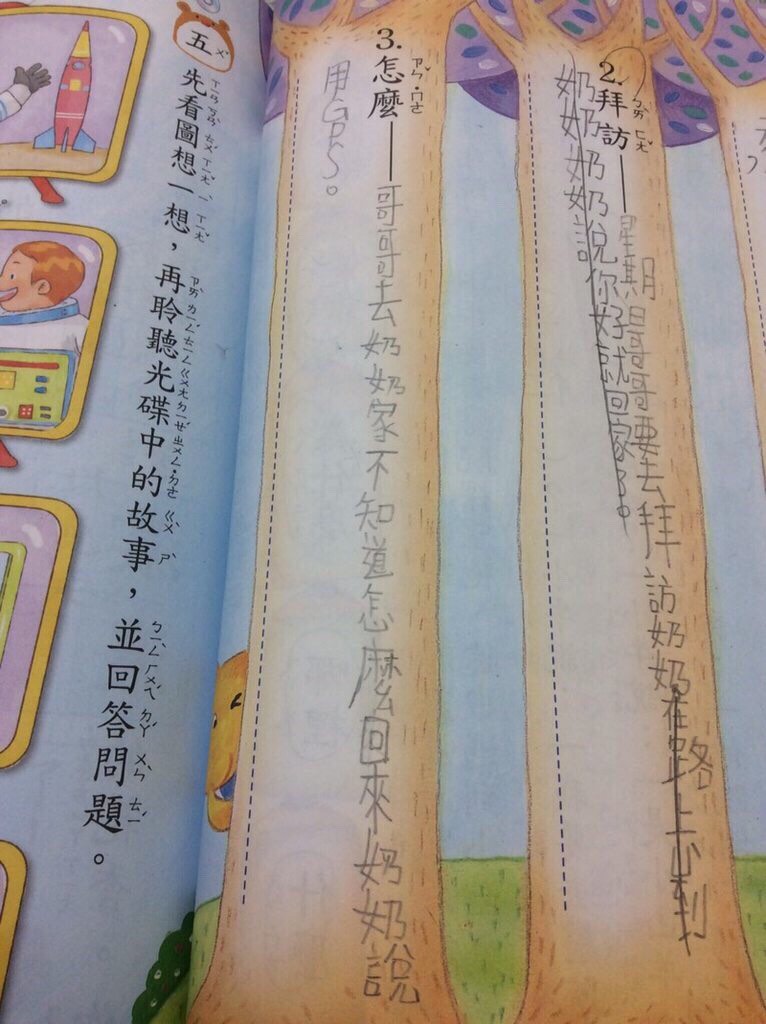 2.拜訪——星期日哥哥要去拜訪奶奶在路上
奶奶奶奶說你好就回家了。
3.怎麼——哥哥去奶奶家不知道怎麼回來奶奶說
用GPS。
五 先看圖想一想，再聆聽光碟中的故事，並回答問題。